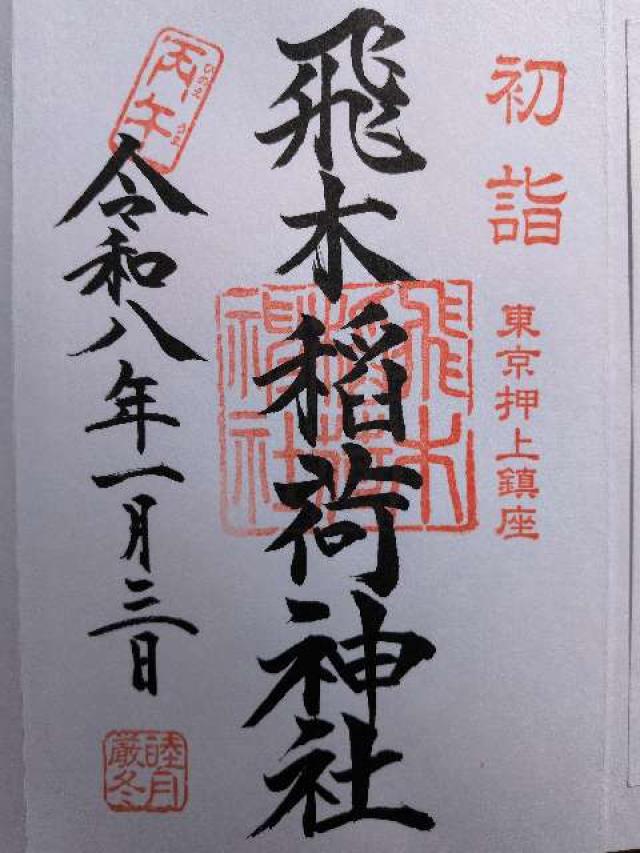 初詣
東京押上鎮座
飛木稲荷神社
飛木稲荷神社
丙午
ひのえ うま
令和八年一月三日
睦月
厳冬